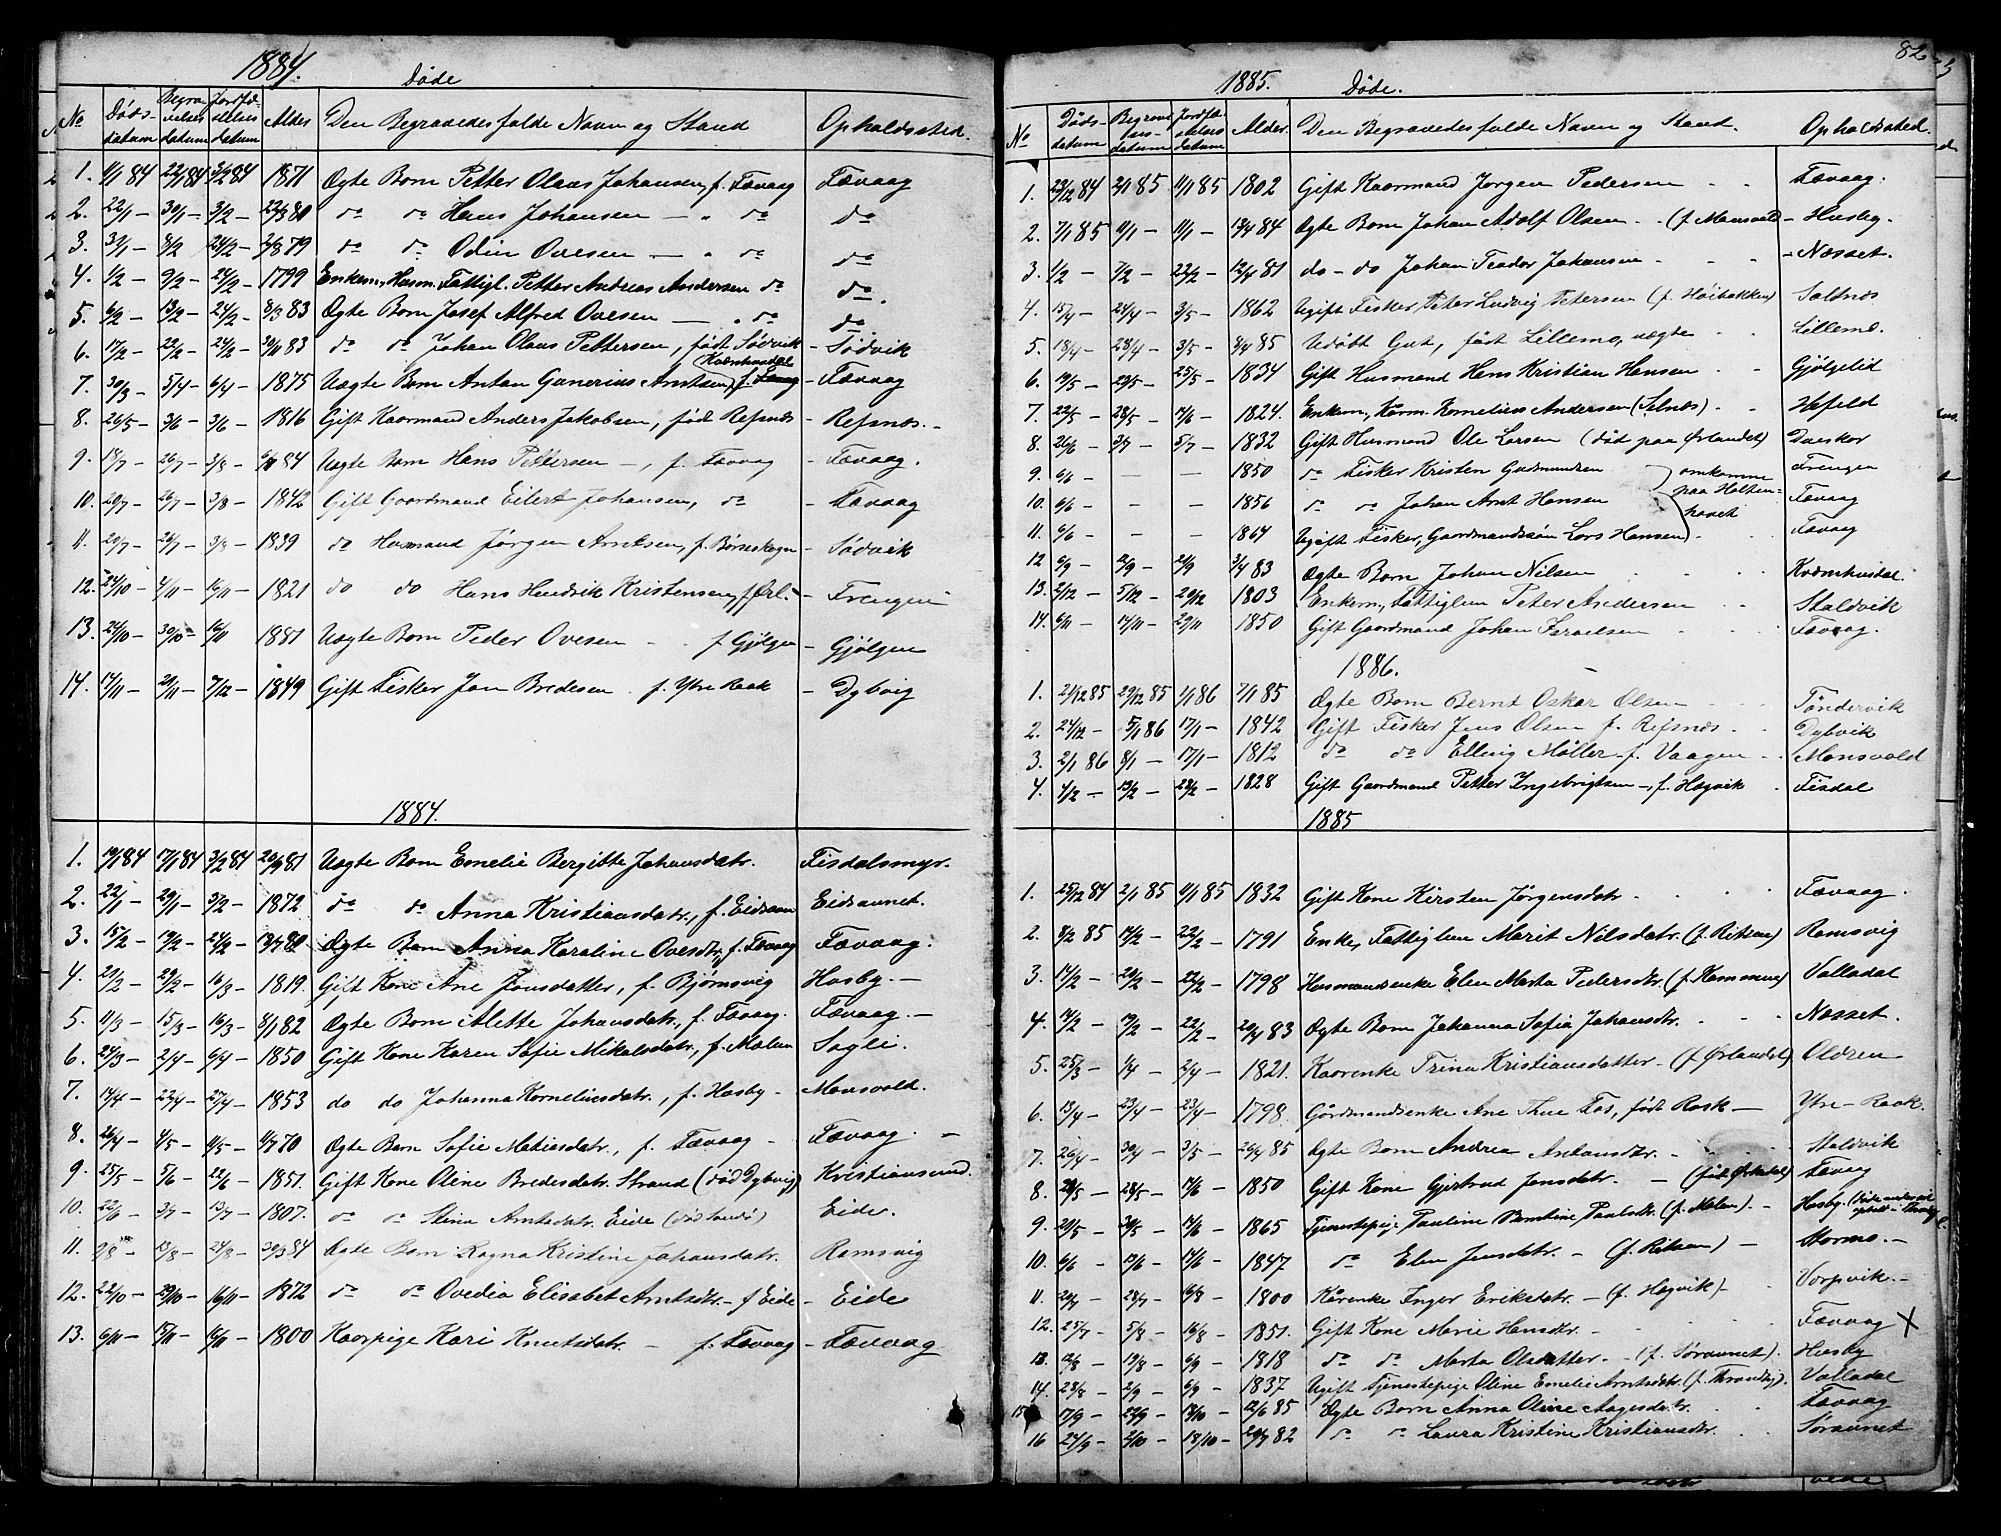 1884.
Døde
No Døds-datum Begravelses datum Jordfæstelses datum Alder Den Begravedes fulde Navn og Stand Opholdssted.
1. 4/1 84 22/1 84 3/2 84 1871 Ægte Barn Petter Olaus Johansen, f. Fævaag Fævaag
2. 22/1 – 30/1 – 3/2 – 80 do do Hans Johansen – „ do do
3. 31/1 – 8/2 24/2 – 1879 do do Odin Ovesen – „ do do
4. 1/2 – 9/2 – 24/2 – 1799 Enkem., Husm. Fattigl. Petter Andreas Andersen do do.
5. 6/2 – 13/2 – 24/2 – 8/3 83 Ægte Barn Josef Alfred Ovesen – „ do do
6. 17/2 – 22/2 – 24/2 – 30/11 83 do do Johan Olaus Pettersen, født Sødvik – Sødvik
7. 30/3 – 5/4 – 6/4 – 1875 Uægte Barn Anton Gunerius Arntsen, f. – Fævaag
8. 26/5 – 3/6 – 3/6 – 1816 Gift Kaarmand Anders Jakobsen, født Refsnæs – Refsnæs. –
9. 18/7 – 26/7 – 3/8 – 84 Uægte Barn Hans Pettersen –, f. Fævaag – Fævaag.
10. 20/7 – 26/7 – 3/8 – 1842 Gift Gaardmand Eilert Johansen, do – Fævaag
11. 20/7 – 26/7 – 3/8 – 1839 do Husmand Jørgen Arntsen, f. Børseskogn – Sødvik
12. 24/10 – 4/11 – 16/11 – 1821 do do Hans Hendrik Kristensen, f. Ørl. – Frengen
13. 24/10 – 30/10 – 16/11 1881 Uægte Barn Peder Ovesen – f. Gjølgen – Gjølgen
14. 17/11 – 21/11 – 7/12 – 1849 Gift Fisker Jon Bredesen f. Ytre Raak – Dybvig
1884.
1. 84 17/1 84 3/2 84 20/9 81 Uægte Barn Emelie Bergitte Johansdatr. Fisdalsmyr.
2. 22/1 – 29/1 – 3/2 – 1872 do do Anna Kristiansdatr., f. Eidsaun Eidsaunet.
3. 15/2 – 19/2 – 24/2 – 80 Ægte Barn Anna Karoline Ovesdtr, f. Fævaag Fævaag.
4. 20/2 – 29/2 – 16/3 – 1819. Gift Kone Ane Jonsdatter, f. Bjørnsvig Husby. –
5. 11/3 – 15/3 – 16/3 – 8/1 82 Ægte Barn Alette Johansdatr., f. Fævaag. Fævaag. –
6. 24/3 – 2/4 – 6/4 – 1850 Gift Kone Karen Sofie Mikalsdatr., f. Mælan Sagli.
7. 14/4 – 22/4 – 27/4 – 1853 do do Johanna Korneliusdatr., f. Husby – Monsvold.
8. 26/4 – 4/5 – 4/5 – 4/7 70 Ægte Barn Sofie Matiasdatr., f. Fævaag – Fævaag. –
9. 25/5 – 5/6 – 22/6 – 1851. Gift Kone Oline Bredesdatr. Strand (død Dybvig) Kristiansund.
10. 22/6 – 3/7 – 13/7 – 1807. do do Stina Arntsdatr. Eide Eide.
11. 9/8 – 13/8 – 24/8 – 30/3 84 Ægte Barn Ragna Kristine Johansdatr. Ramsvig
12. 22/10 – 29/10 – 16/11 – 1872 do do Ovedia Elisabet Arntsdtr. – f. Eide – Eide
13. 6/11 – 15/11 – 16/11 – 1800 Kaarpige Kari Knutsdatr. – f. Fævaag – Fævaag
82
1885. Døde.
No Døds-datum Begravelses-datum Jordfæstelses datum Alder. Den Begravedes fulde Navn og Stand. Opholdssted.
1. 23/12 84 2/1 85 4/1 85 1802 Gift Kaarmand Jørgen Pedersen Fævaag.
2. 7/1 85 9/1 – 11/1 – 84 Ægte Barn Johan Adolf Olsen (f. Monsvold – Husby.
3. 1/2 – 7/2 – 22/2 – 12/4 81 do – do Johan Teodor Johansen – Næsset.
4. 15/4 – 24/4 – 3/5 – 1862 Ugift Fisker, Peter Ludvig Petersen (f. Høibakken) Saltnes
5. 18/4 – 28/4 – 3/5 – 9/4 85 Udøbt Gut, født Lillemo, uægte Lillemo.
6. 19/5 – 29/5 – 25/5 – 1834 Gift Husmand Hans Kristian Hansen Gjølgelid
7. 22/5 – 28/5 – 14/6 – 1824. Enkem., Kårm. Kornelius Andersen (Selnes) Hefeld
8. 26/6 – 3/7 – 5/7 – 1832 Gift Husmand Ole Larsen (død paa Ørlandet) Daskar
9. 6/6 – – – 1850 do Fisker Kristen Gudmundsen omkomne Frengen
10. 6/6 – – – 1856 do do Johan Arnt Hansen paa Halten- Fævaag
11. 6/6 – – – 1864 Ugift Fisker, Gaardmandssøn Lars Hansen havet Fævaag
12 6/9 – 12/9 – 20/9 3/4 83 Ægte Barn Johan Nilsen Kvernhusdal.
13. 2/12 – 5/12 – 20/12 1803 Enkem., Fattiglem Peter Andersen Staldvik
14. 6/11 – 14/11 – 29/11 1850 Gift Gaardmand Johan Israelsen Fævaag.
1886.
1. 21/12 85 29/12 85 1/1 86 7/1 85 Ægte Barn Bernt Oskar Olsen Tøndervik
2. 24/12 – 5/1 86 17/1 – 1842 Gift Fisker Jens Olsen f. Refsnæs Dybvik
3. 2/1 86 8/1 – 17/1 – 1812 do do Elling Møller f. Vaagen Monsvold
4. 4/2 – 13/2 – 28/2 – 1828 Gift Gaardmand Petter Ingebrigtsen –, f. Hegvik Fisdal
1885
1. 25/12 84 2/1 85 4/1 85 1832 Gift Kone Kirsten Jørgensdatr Fævaag.
2. 8/2 85 14/2 – 22/2 – 1791 Enke, Fattiglem Marit Nilsdatr. (f. Rissen) Ramsvig
3. 14/2 – 20/2 – 22/2 – 1798 Husmandsenke Elen Marta Pedersdtr. (f. Kammen) Valladal
4. 14/2 – 19/2 – 22/2 – 83 Ægte Barn Johanna Sofia Johansdtr. Næsset.
5. 25/3 – 1/4 – 2/4 – 1821. Kaarenke Trina Kristiansdatter – (f. Ørlandet) Oldren
6. 13/4 – 23/4 – 23/4 – 1798. Gårdmandsenke Ane Thue Fos, født Rask – Ytre – Raak.
7. 26/4 – 30/4 – 3/5 – 20/4 85 Ægte Barn Andrea Antonsdtr. Staldvik
8. 20/5 – 28/5 – 14/6 – 1850 Gift Kone Gjertrud Jonsdatr. – (født Ørlandet) Fævaag
9. 20/5 – 30/5 – 14/6 – 1865 Tjenestepige Pauline Berntine Paulsdtr. (f. Mælan). – Husby.
10. 6/6 – 13/6 – 14/6 – 1847 do Elen Jensdatr. – (f. Rissen) – Stormo. –
11. 20/7 – 28/7 – 16/8 – 1800 Kårenke Inger Eriksdatr. – (f. Hegvik) – Vorpvik. –
12. 25/7 – 5/8 – 16/8 – 1851. Gift Kone Marie Hansdtr. Fævaag X
13. 12/8 – 19/8 – 6/9 – 1818 do do Marta Olsdatter. – (f. Søraunet). Husby
14. 28/8 – 2/9 – 6/9 – 1837 Ugift Tjenestepige Oline Emelie Arntsdatr. (f. Trondhj). Valladal
15 17/9 – 22/9 – 18/10 – 12/6 85 Ægte Barn Anna Oline Aagesdatr. Fævaag
16 24/9 – 2/10 – 18/10 – 82 do do Laura Kristine Kristiansdtr. Søraunet